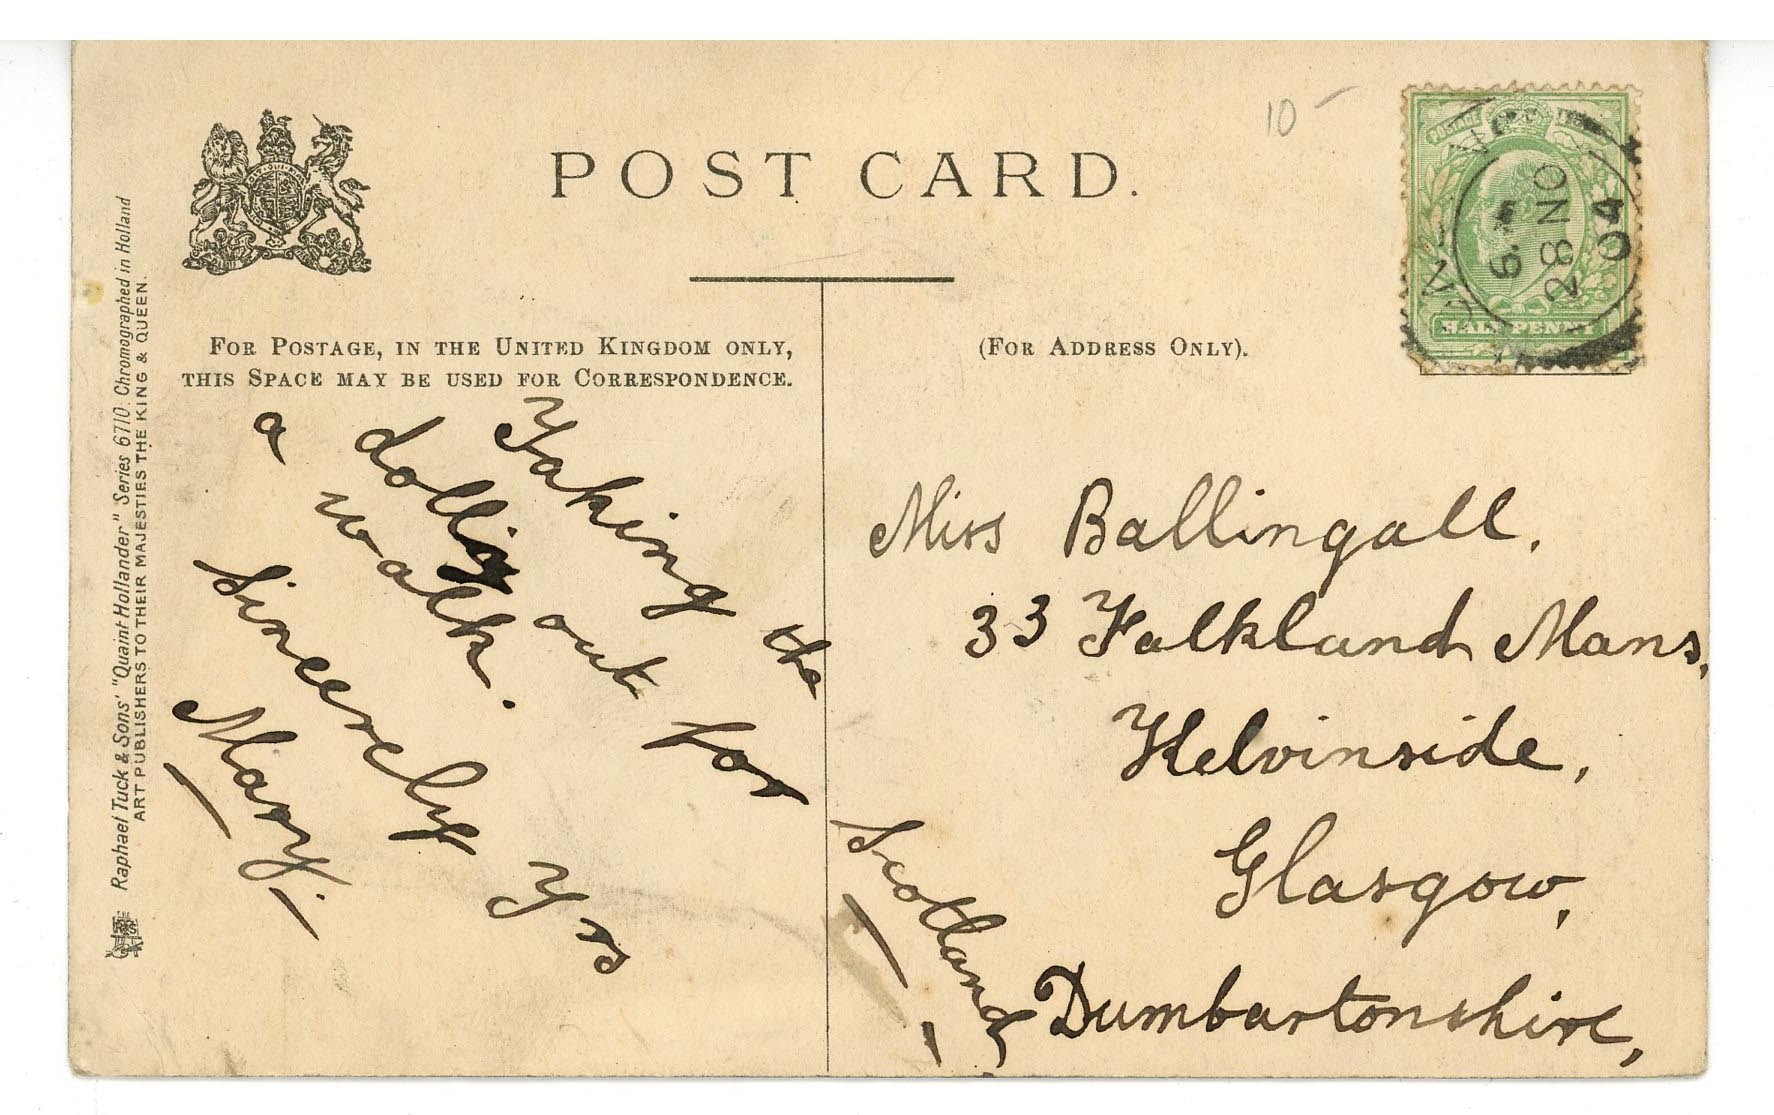 POST CARD.
10-
FOR POSTAGE, IN THE UNITED KINGDOM ONLY,
THIS SPACE MAY BE USED FOR CORRESPONDENCE.
(FOR ADDRESS ONLY).
HALF PENNY
POSTAGE
28 NO
04
Raphael Tuck & Sons' "Quaint Hollander" Series 6710. Chromographed in Holland
ART PUBLISHERS TO THEIR MAJESTIES THE KING & QUEEN.
Taking the
dolly out for
a walk.
Sincerely Yrs
Mary.
Miss Ballingall,
33 Falkland Mans,
Kelvinside,
Glasgow,
Dumbartonshire,
Scotland